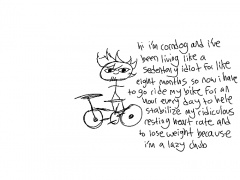 hi i'm corndog and i've
been living like a
sedentary idiot for like
eight months so now i have
to go ride my bike for an
hour every day to help
stabilize my ridiculous
resting heart rate and
to lose weight because
i'm a lazy chub